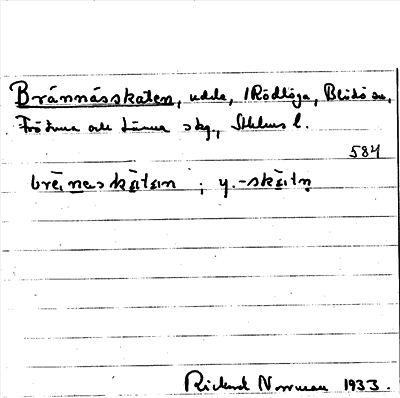 Brännässkaten, udde, i Rödlöga, Blidö sn,
Frötuna och Länna skg., Sthlms l.
584
brēnaskatan ; y. -skatn
Rickard Norrman 1933.